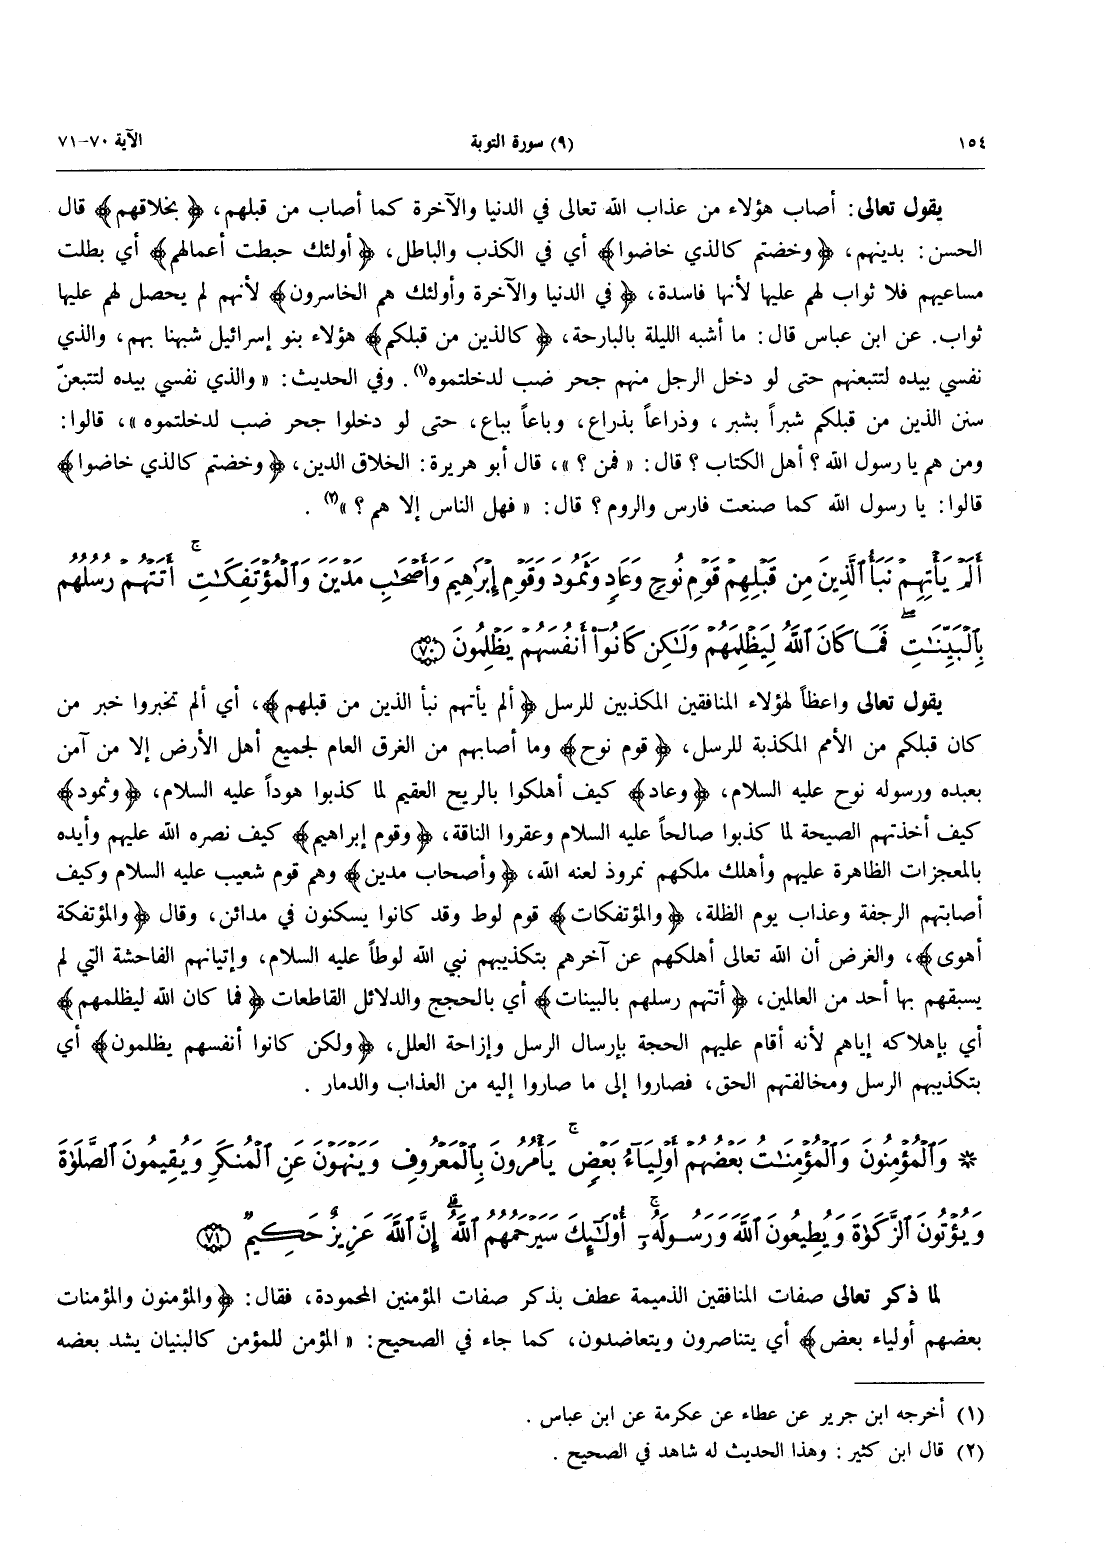 ١٥٤ (٩) سورة التوبة الآية ٧٠-٧١
يقول تعالى: أصاب هؤلاء من عذاب الله تعالى في الدنيا والآخرة كما أصاب من قبلهم، ﴿بخلاقهم﴾ قال
الحسن: بدينهم، ﴿وخضتم كالذي خاضوا﴾ أي في الكذب والباطل، ﴿أولئك حبطت أعمالهم﴾ أي بطلت
مساعيهم فلا ثواب لهم عليها لأنها فاسدة، ﴿في الدنيا والآخرة وأولئك هم الخاسرون﴾ لأنهم لم يحصل لهم عليها
ثواب. عن ابن عباس قال: ما أشبه الليلة بالبارحة، ﴿كالذين من قبلكم﴾ هؤلاء بنو إسرائيل شبهنا بهم، والذي
نفسي بيده لتتبعنهم حتى لو دخل الرجل منهم جحر ضب لدخلتموه(١). وفي الحديث: «والذي نفسي بيده لتتبعنّ
سنن الذين من قبلكم شبراً بشبر، وذراعاً بذراع، وباعاً بباع، حتى لو دخلوا جحر ضب لدخلتموه»، قالوا:
ومن هم يا رسول الله؟ أهل الكتاب؟ قال: «فمن؟»، قال أبو هريرة: الخلاق الدين، ﴿وخضتم كالذي خاضوا﴾
قالوا: يا رسول الله كما صنعت فارس والروم؟ قال: «فهل الناس إلا هم؟»(٢).
أَلَمۡ يَأۡتِهِمۡ نَبَأُ ٱلَّذِينَ مِن قَبۡلِهِمۡ قَوۡمِ نُوحٖ وَعَادٖ وَثَمُودَ وَقَوۡمِ إِبۡرَٰهِيمَ وَأَصۡحَٰبِ مَدۡيَنَ وَٱلۡمُؤۡتَفِكَٰتِۚ أَتَتۡهُمۡ رُسُلُهُم
بِٱلۡبَيِّنَٰتِۖ فَمَا كَانَ ٱللَّهُ لِيَظۡلِمَهُمۡ وَلَٰكِن كَانُوٓاْ أَنفُسَهُمۡ يَظۡلِمُونَ ﴿٧٠﴾
يقول تعالى واعظاً لهؤلاء المنافقين المكذبين للرسل ﴿ألم يأتهم نبأ الذين من قبلهم﴾، أي ألم تخبروا خبر من
كان قبلكم من الأمم المكذبة للرسل، ﴿قوم نوح﴾ وما أصابهم من الغرق العام لجميع أهل الأرض إلا من آمن
بعبده ورسوله نوح عليه السلام، ﴿وعاد﴾ كيف أهلكوا بالريح العقيم لما كذبوا هوداً عليه السلام، ﴿وثمود﴾
كيف أخذتهم الصيحة لما كذبوا صالحاً عليه السلام وعقروا الناقة، ﴿وقوم إبراهيم﴾ كيف نصره الله عليهم وأيده
بالمعجزات الظاهرة عليهم وأهلك ملكهم نمروذ لعنه الله، ﴿وأصحاب مدين﴾ وهم قوم شعيب عليه السلام وكيف
أصابتهم الرجفة وعذاب يوم الظلة، ﴿والمؤتفكات﴾ قوم لوط وقد كانوا يسكنون في مدائن، وقال ﴿والمؤتفكة
أهوى﴾، والغرض أن الله تعالى أهلكهم عن آخرهم بتكذيبهم نبي الله لوطاً عليه السلام، وإتيانهم الفاحشة التي لم
يسبقهم بها أحد من العالمين، ﴿أتتهم رسلهم بالبينات﴾ أي بالحجج والدلائل القاطعات ﴿فما كان الله ليظلمهم﴾
أي بإهلاكه إياهم لأنه أقام عليهم الحجة بإرسال الرسل وإزاحة العلل، ﴿ولكن كانوا أنفسهم يظلمون﴾ أي
بتكذيبهم الرسل ومخالفتهم الحق، فصاروا إلى ما صاروا إليه من العذاب والدمار.
* وَٱلۡمُؤۡمِنُونَ وَٱلۡمُؤۡمِنَٰتُ بَعۡضُهُمۡ أَوۡلِيَآءُ بَعۡضٖۚ يَأۡمُرُونَ بِٱلۡمَعۡرُوفِ وَيَنۡهَوۡنَ عَنِ ٱلۡمُنكَرِ وَيُقِيمُونَ ٱلصَّلَوٰةَ
وَيُؤۡتُونَ ٱلزَّكَوٰةَ وَيُطِيعُونَ ٱللَّهَ وَرَسُولَهُۥٓۚ أُوْلَٰٓئِكَ سَيَرۡحَمُهُمُ ٱللَّهُۗ إِنَّ ٱللَّهَ عَزِيزٌ حَكِيمٞ ﴿٧١﴾
لما ذكر تعالى صفات المنافقين الذميمة عطف بذكر صفات المؤمنين المحمودة، فقال: ﴿والمؤمنون والمؤمنات
بعضهم أولياء بعض﴾ أي يتناصرون ويتعاضدون، كما جاء في الصحيح: «المؤمن للمؤمن كالبنيان يشد بعضه
(١) أخرجه ابن جرير عن عطاء عن عكرمة عن ابن عباس.
(٢) قال ابن كثير: وهذا الحديث له شاهد في الصحيح.